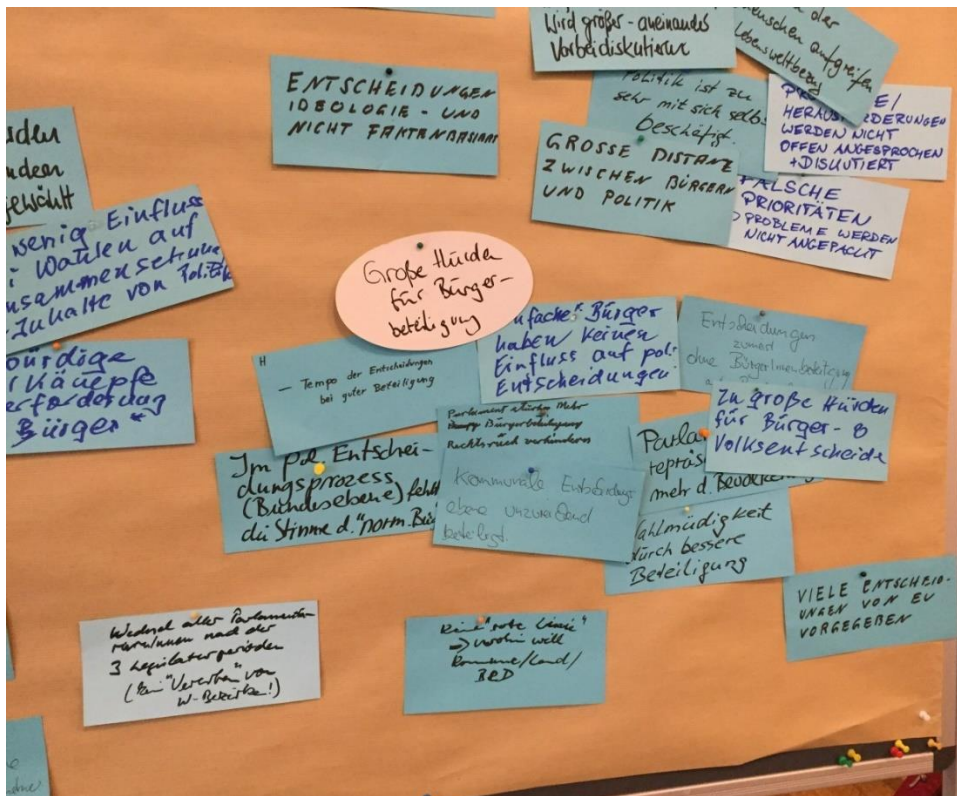 wird größer - aneinander
vorbeidiskutieren
der
Menschen aufgreifen
Lebensweltbezug
ENTSCHEIDUNGEN
IDEOLOGIE - UND
NICHT FAKTENBASIERT
Politik ist zu
sehr mit sich selbs
beschäftigt.
HERAUSFORDERUNGEN
WERDEN NICHT
OFFEN ANGESPROCHEN
+ DISKUTIERT
GROSSE DISTANZ
ZWISCHEN BÜRGERN
UND POLITIK
FALSCHE
PRIORITÄTEN
PROBLEME WERDEN
NICHT ANGEPACKT
gewählt
wenig Einfluss
Wahlen auf
Inhalte von Politik
Große Hürden
für Bürger-
beteiligung
würdige
Kämpfe
Bürger"
H
- Tempo der Entscheidungen
bei guter Beteiligung
nfache" Bürger
haben keinen
Einfluss auf pol.
Entscheidungen.
Entscheidungen
zumeist
ohne BürgerInnenbeteiligung
Zu große Hürden
für Bürger- &
Volksentscheide
Parlament stärken Mehr
Bürgerbeteiligung
Rechtsruck verhindern
Parla
repräs
mehr d. Bevölkerung
Im pol. Entschei-
dungsprozess
(Bundesebene) fehlt
die Stimme d. "norm. Bü
Kommunale Entscheidungs
ebene unzureichend
beteiligt.
ahlmüdigkeit
durch bessere
Beteiligung
VIELE ENTSCHEID-
UNGEN VON EU
VORGEGEBEN
Wechsel aller Parlamenta-
rierInnen nach der
3 Legislaturperioden
(kein "Vererben" von
W-Bezirken!)
Keine "rote Linie"
→ wohin will
Kommune/Land/
BRD